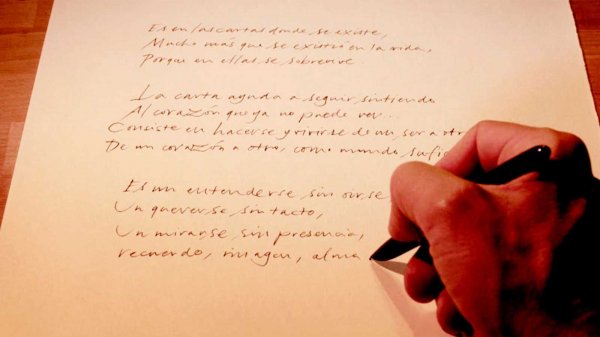 Es en las cartas donde se existe,
Mucho más que se existió en la vida,
Porque en ellas se sobrevive.
La carta ayuda a seguir sintiendo
Al corazón que ya no puede ver...
Consiste en hacerse y vivirse de un ser a otro
De un corazón a otro, como mundo
Es un entenderse sin oirse
Un quererse sin tacto,
Un mirarse sin presencia,
recuerdo, imagen, alma